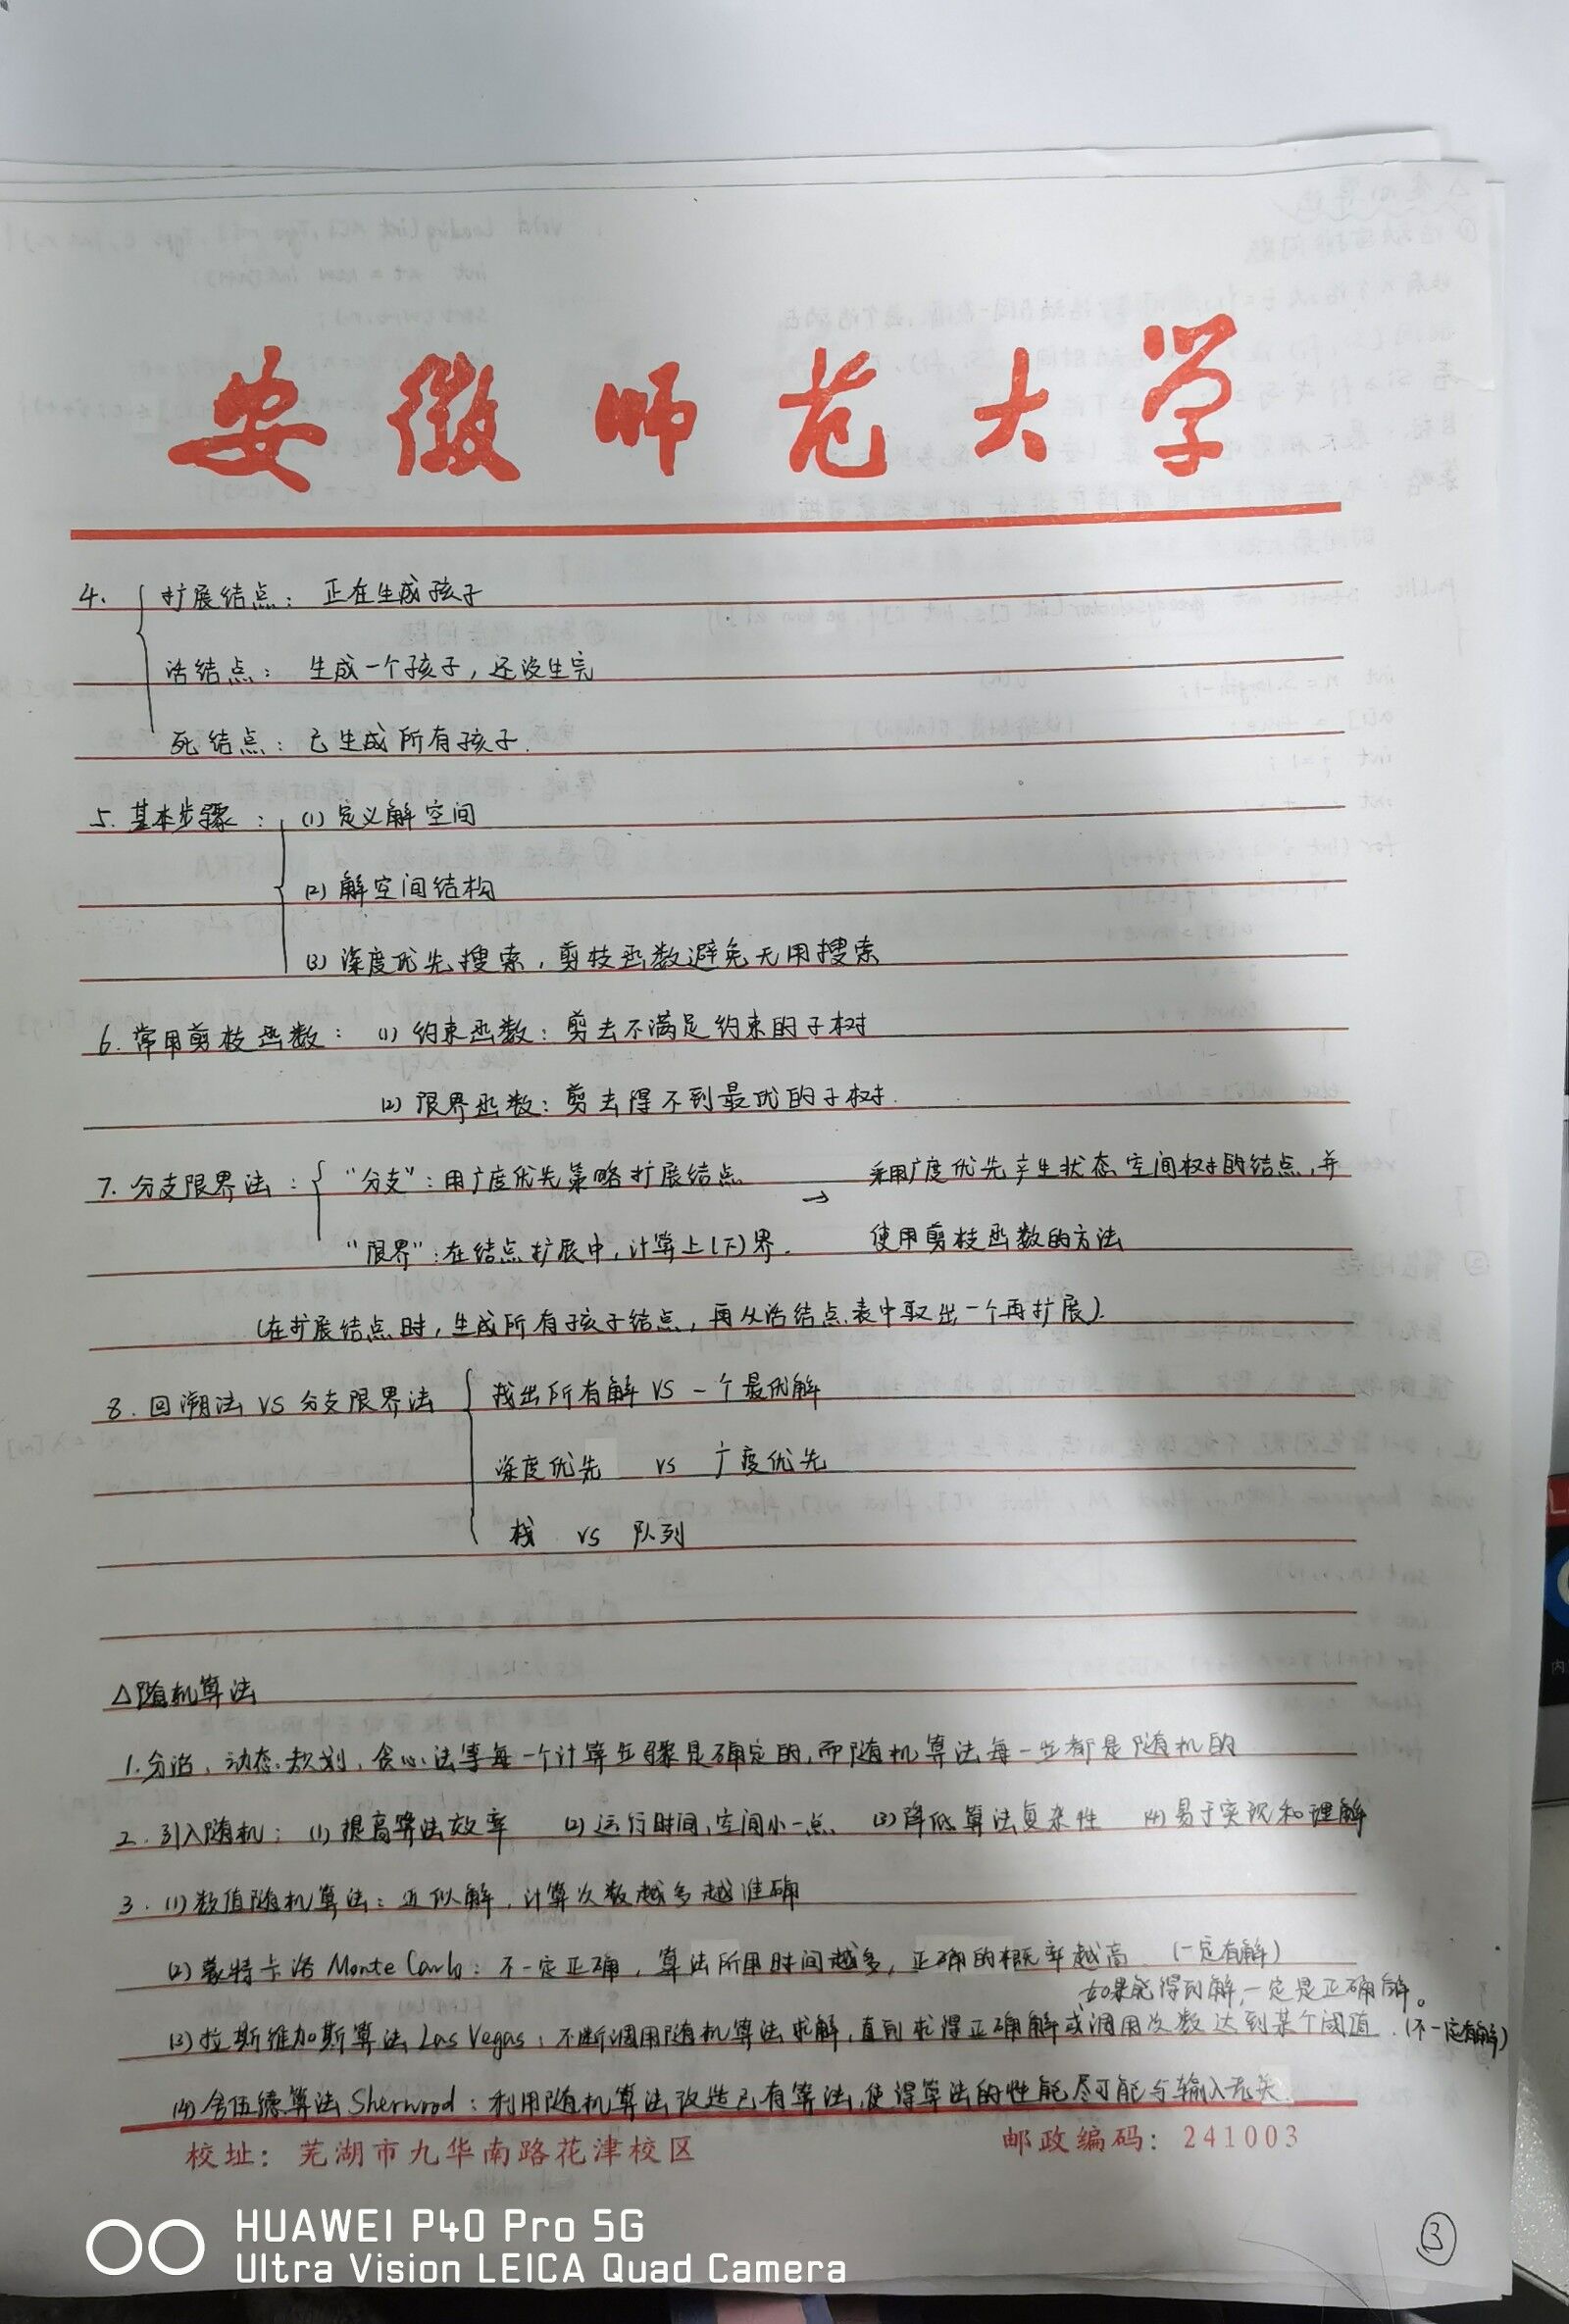 安徽师范大学
4. 扩展结点: 正在生成孩子
活结点: 生成一个孩子,还没生完
死结点: 已生成所有孩子.
5. 基本步骤: (1) 定义解空间
(2) 解空间结构
(3) 深度优先搜索,剪枝函数避免无用搜索
6. 常用剪枝函数: (1) 约束函数: 剪去不满足约束的子树
(2) 限界函数: 剪去得不到最优的子树.
7. 分支限界法: "分支": 用广度优先策略扩展结点 → 采用广度优先产生状态空间树的结点,并
"限界": 在结点扩展中,计算上(下)界. 使用剪枝函数的方法
(在扩展结点时,生成所有孩子结点,再从活结点表中取出一个再扩展).
8. 回溯法 VS 分支限界法 找出所有解 VS 一个最优解
深度优先 vs 广度优先
栈 vs 队列
△随机算法
1. 分治、动态规划、贪心法等每一个计算步骤是确定的,而随机算法每一步都是随机的
2. 引入随机: (1) 提高算法效率 (2) 运行时间,空间小一点 (3) 降低算法复杂性 (4) 易于实现和理解
3. (1) 数值随机算法: 近似解,计算次数越多越准确
(2) 蒙特卡洛 Monte Carlo: 不一定正确,算法所用时间越多,正确的概率越高 (一定有解)
如果能得到解,一定是正确解。
(3) 拉斯维加斯算法 Las Vegas: 不断调用随机算法求解,直到求得正确解或调用次数达到某个阈值.(不一定有解)
(4) 舍伍德算法 Sherwood: 利用随机算法改造已有算法,使得算法的性能尽可能与输入无关.
校址: 芜湖市九华南路花津校区 邮政编码: 241003
③
HUAWEI P40 Pro 5G
Ultra Vision LEICA Quad Camera